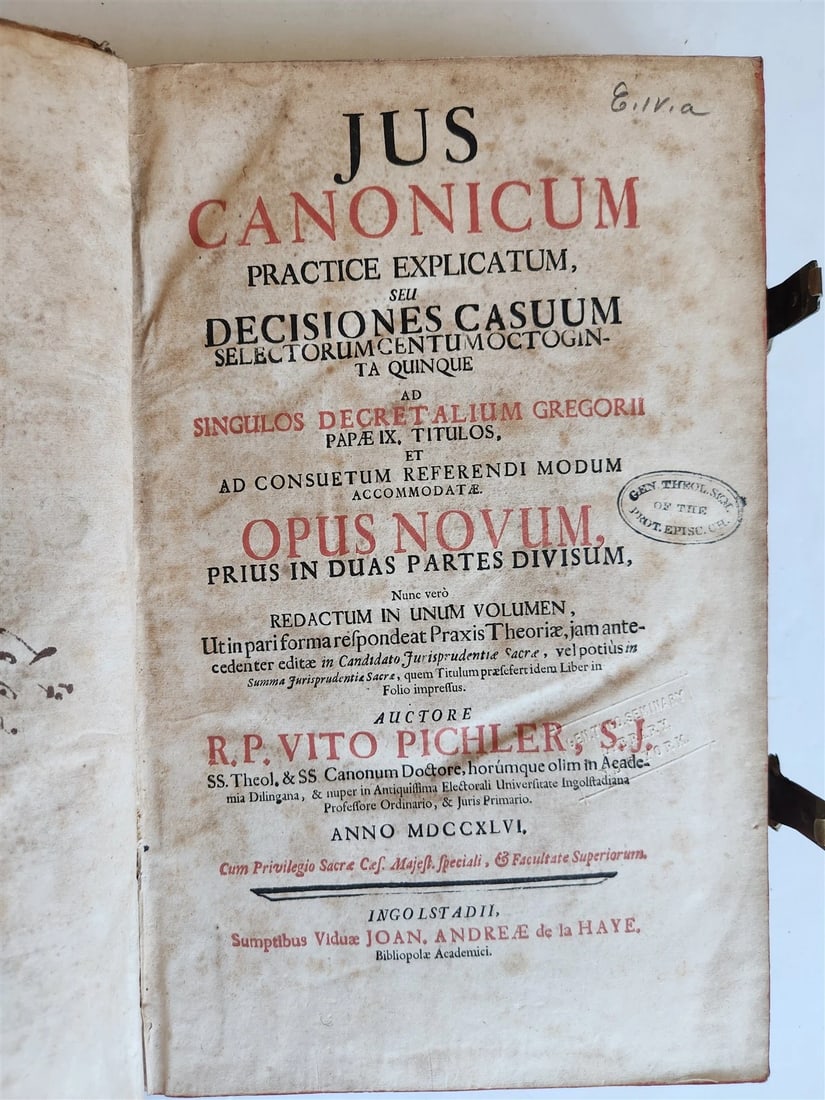 E.iv.a
JUS
CANONICUM
PRACTICE EXPLICATUM,
SEU
DECISIONES CASUUM
SELECTORUM CENTUM OCTOGIN-
TA QUINQUE
AD
SINGULOS DECRETALIUM GREGORII
PAPÆ IX. TITULOS,
ET
AD CONSUETUM REFERENDI MODUM
ACCOMMODATÆ.
GEN. THEOL. SEM.
OF THE
PROT. EPISC. CH.
OPUS NOVUM,
PRIUS IN DUAS PARTES DIVISUM,
Nunc verò
REDACTUM IN UNUM VOLUMEN,
Ut in pari forma reſpondeat Praxis Theoriæ, jam ante-
cedenter editæ in Candidato Jurisprudentiæ Sacræ, vel potiùs in
Summa Jurisprudentiæ Sacræ, quem Titulum præſefert idem Liber in
Folio impreſſus.
AUCTORE
R.P. VITO PICHLER, S.J.
SS. Theol. & SS. Canonum Doctore, horúmque olim in Acade-
mia Dilingana, & nuper in Antiquiſſima Electorali Univerſitate Ingolſtadiana
Profeſſore Ordinario, & Juris Primario.
SEMINARY
LIBRARY
ANNO MDCCXLVI.
Cum Privilegio Sacræ Cæſ. Majeſt. ſpeciali, & Facultate Superiorum.
INGOLSTADII,
Sumptibus Viduæ JOAN. ANDREÆ de la HAYE,
Bibliopolæ Academici.